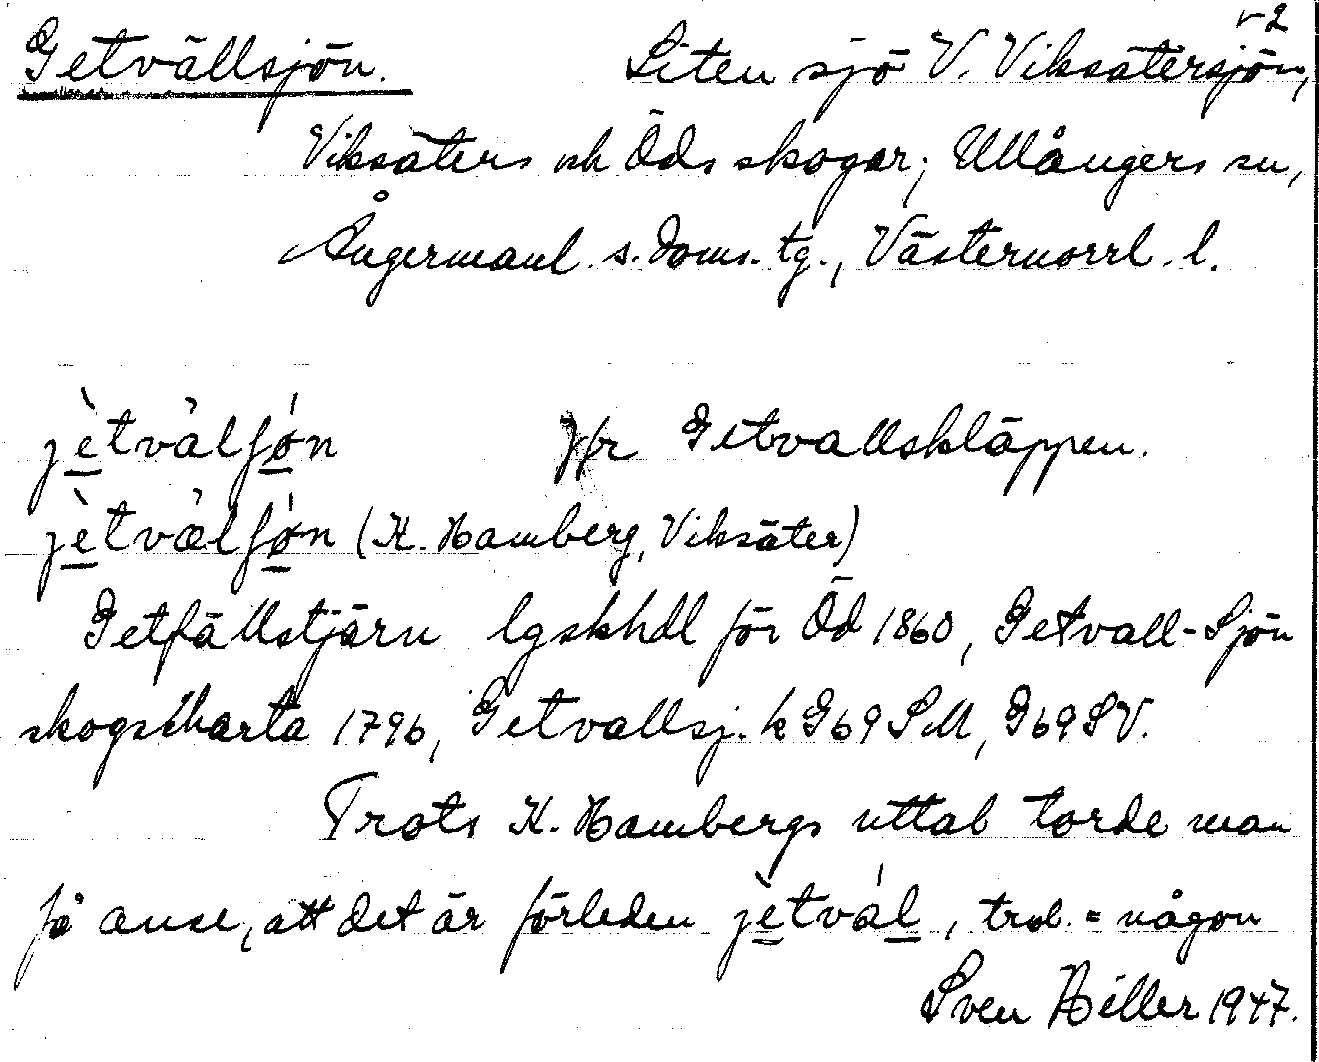 v 2
Getvällsjön. Liten sjö V. Viksätersjön,
Viksäters och Öds skogar; Ullångers sn,
Ångermanl. s. doms. tg., Västernorrl. l.
jètvàlʃø̀n Jfr Getvallskläppen.
jètvælʃø̀n (K. Hamberg, Viksäter)
Getfällstjärn lgskhdl för Öd 1860, Getvall-Sjön
skogskarta 1796, Getvallsj. k G69SM, G69SV.
Trots K. Hambergs uttal torde man
få anse, att det är förleden jètvál, trol. = någon
Sven Hiller 1947.